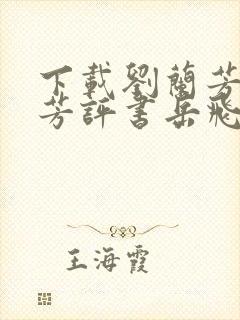 下載劉蘭芳
芳評書岳飛
王海霞